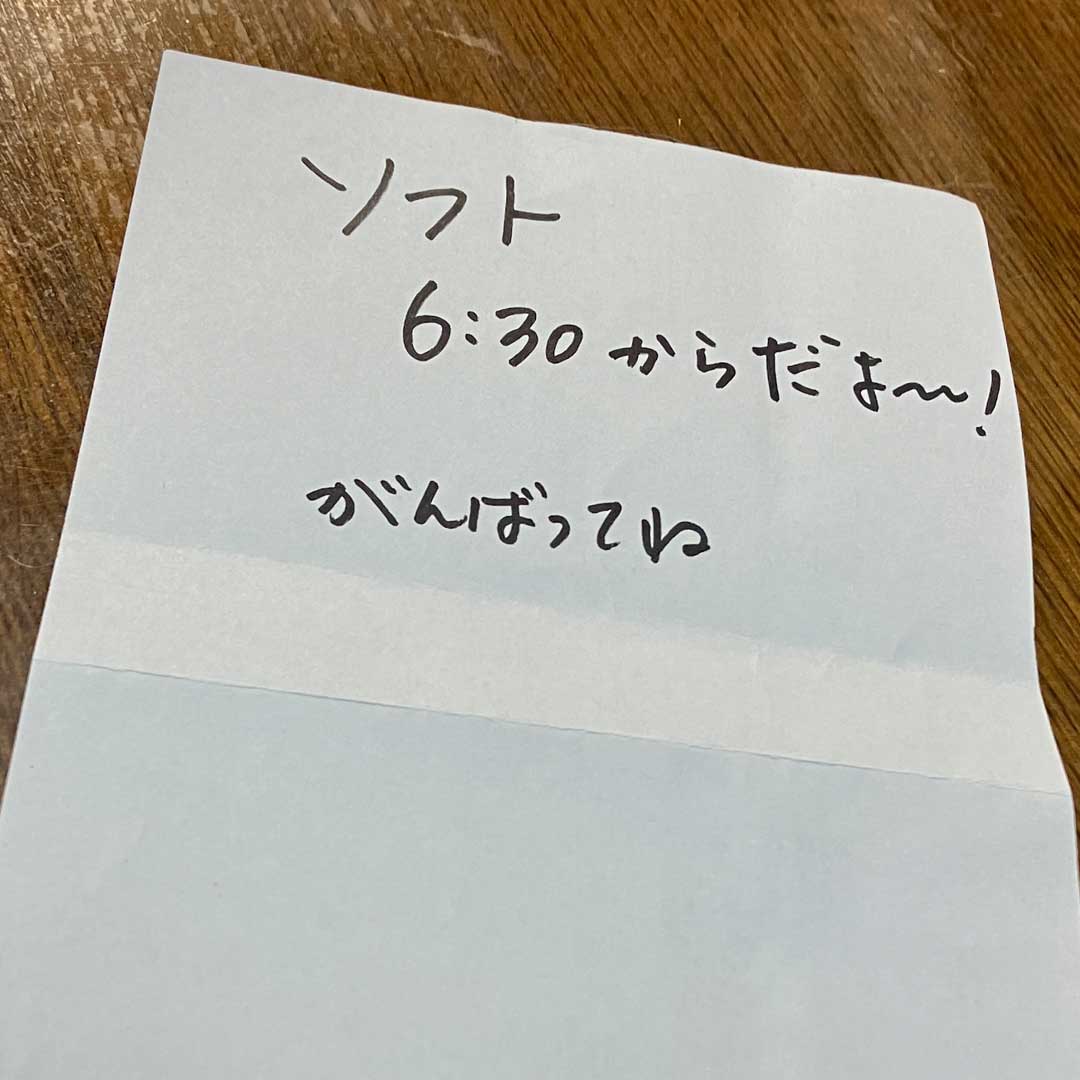 ソフト
6:30からだよ〜!
がんばってね